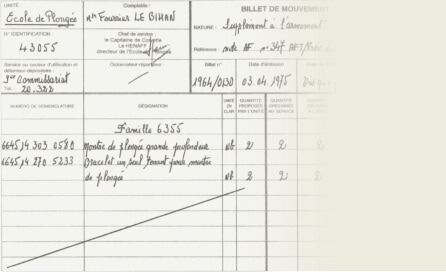 UNITÉ :
École de Plongée
N° IDENTIFICATION :
43055
Service ou secteur d'utilisation et détenteur dépositaire :
1er Commissariat
Tél. 20.322
Comptable :
Mr Fourrier LE BIHAN
Chef de service :
le Capitaine de Corvette
Le HENAFF
directeur de l'École de Plongée
BILLET DE MOUVEMENT
NATURE : Supplément à l'armement
Référence : note AF n° 347
Billet n°
1964/0130
Date d'émission
03.04.1975
NUMÉRO DE NOMENCLATURE
DÉSIGNATION
QUANTITÉ PROPOSÉE PAR L'UNITÉ
QUANTITÉ
AU SERVICE
QUANTITÉ
Famille 6355
6645 14 303 0580 Montre de plongée grande profondeur Nb 2 2
6645 14 270 5233 Bracelet un seul tenant pour montre
de plongée Nb 2 2